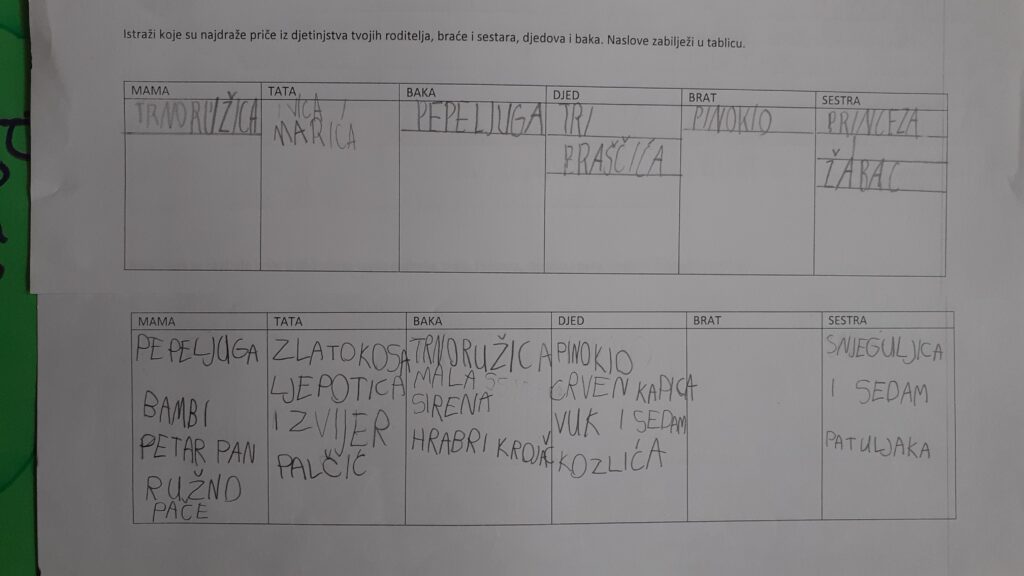 Istraži koje su najdraže priče iz djetinjstva tvojih roditelja, braće i sestara, djedova i baka. Naslove zabilježi u tablicu.
MAMA TATA BAKA DJED BRAT SESTRA
TRNORUŽICA IVICA I PEPELJUGA TRI PINOKIO PRINCEZA
MARICA PRAŠČIĆA I
ŽABAC
MAMA TATA BAKA DJED BRAT SESTRA
PEPELJUGA ZLATOKOSA TRNORUŽICA PINOKIO SNJEGULJICA
LJEPOTICA MALA CRVENKAPICA I SEDAM
BAMBI I ZVIJER SIRENA VUK I SEDAM
PETAR PAN PALČIĆ HRABRI KROJAČ KOZLIĆA PATULJAKA
RUŽNO
PAČE